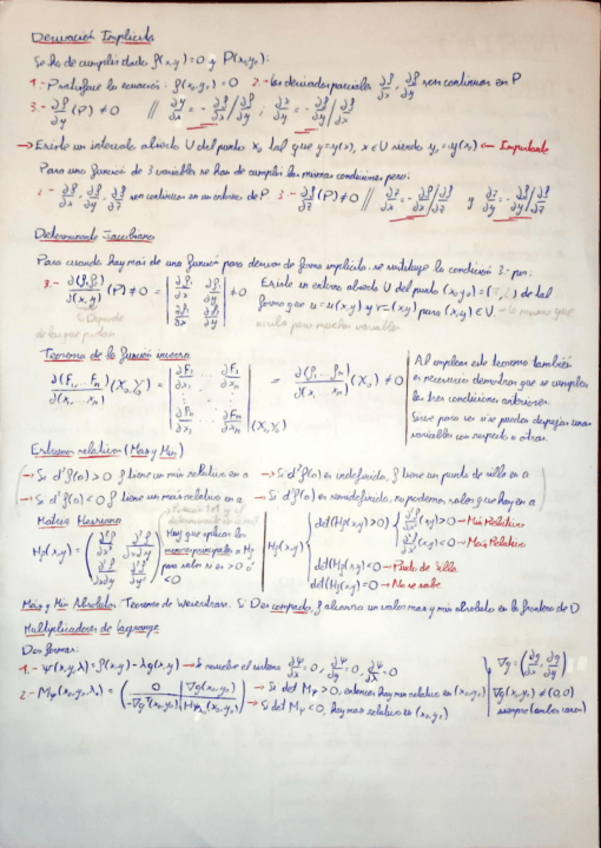 Derivación Implícita
Se ha de cumplir dado f(x,y)=0 y P(x₀,y₀):
1.- P satisface la ecuación: f(x₀,y₀) = 0 2.- las derivadas parciales ∂f/∂x, ∂f/∂y son continuas en P
3.- ∂f/∂y (P) ≠ 0 // ∂y/∂x = - ∂f/∂x / ∂f/∂y ; ∂x/∂y = - ∂f/∂y / ∂f/∂x
→ Existe un intervalo abierto U del punto x₀ tal que y=y(x), x ∈ U siendo y₀=y(x₀) ← Importante
Para una función de 3 variables se han de cumplir las mismas condiciones pero:
2.- ∂f/∂x, ∂f/∂y, ∂f/∂z son continuas en un entorno de P. 3.- ∂f/∂z (P) ≠ 0 // ∂z/∂x = - ∂f/∂x / ∂f/∂z y ∂z/∂y = - ∂f/∂y / ∂f/∂z
Determinante Jacobiano
Para cuando hay más de una función para derivar de forma implícita se sustituye la condición 3 por:
3.- (P) ≠ 0 = ≠ 0 Existe un entorno abierto U del punto (x₀,y₀) de tal
forma que u=u(x,y) y v=(x,y) para (x,y) ∈ U. → Lo mismo que
Depende
de las que pidan
para muchas variables
Teorema de la función inversa
∂(F₁,...Fₙ)/∂(x₁,...xₙ) (X₀,Y₀) = | ∂F₁/∂x₁ ... ∂F₁/∂xₙ ... ∂Fₙ/∂x₁ ... ∂Fₙ/∂xₙ | (X₀,Y₀) = ∂(f₁,...fₙ)/∂(x₁...xₙ) (X₀) ≠ 0
Al emplear este teorema también
es necesario demostrar que se cumplen
las tres condiciones anteriores.
Sirve para ver si se pueden despejar unas
variables con respecto a otras.
Extremos relativos (Max y Min)
→ Si d²f(a) > 0 f tiene un min relativo en a → Si d²f(a) es indefinida, f tiene un punto de silla en a
→ Si d²f(a) < 0 f tiene un max relativo en a → Si d²f(a) es semidefinida, no podemos saber que hay en a
Matriz Hessiana
Hf(x,y) = ( ∂²f/∂x² ∂²f/∂x∂y ∂²f/∂x∂y ∂²f/∂y² )
Hay que aplicar los
menores principales a Hf
para saber si es > 0 ó
< 0
Hf(x,y)
det(Hf(x,y)) > 0 { ∂²f/∂x² (x,y) > 0 → Min Relativo
∂²f/∂x² (x,y) < 0 → Max Relativo
det(Hf(x,y)) < 0 → Punto de Silla
det(Hf(x,y)) = 0 → No se sabe
Max y Min Absolutos: Teorema de Weierstrass. Si D es compacto, f alcanza un valor max y min absoluto en la frontera de D
Multiplicadores de Lagrange
Dos formas:
1.- Ψ(x,y,λ) = f(x,y) - λg(x,y) → Se resuelve el sistema ∂Ψ/∂x = 0, ∂Ψ/∂y = 0, ∂Ψ/∂λ = 0
∇g = (∂g/∂x, ∂g/∂y)
2.- MΨ(x₀,y₀,λ₀) = ( 0 | ∇g(x₀,y₀) / -∇gᵗ(x₀,y₀) | HΨ(x₀,y₀) ) → Si det MΨ > 0, entonces hay min relativo en (x₀,y₀)
→ Si det MΨ < 0, hay max relativo en (x₀,y₀)
∇g(x₀,y₀) ≠ (0,0)
siempre (ambos casos)